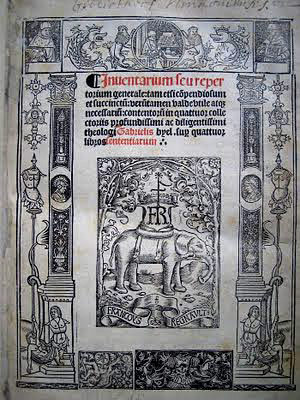 Inuentarium seu reper
torium generale: tam etsi cõpendiosum
et succinctũ: verũtamen valde vtile atqȝ
necessariũ: contentorũ in quattuor colle
ctoriis profundissimi ac diligentissimi
theologi Gabrielis byel. suꝑ quattuor
libros sententiarum
FRANCOYS REGNAULT